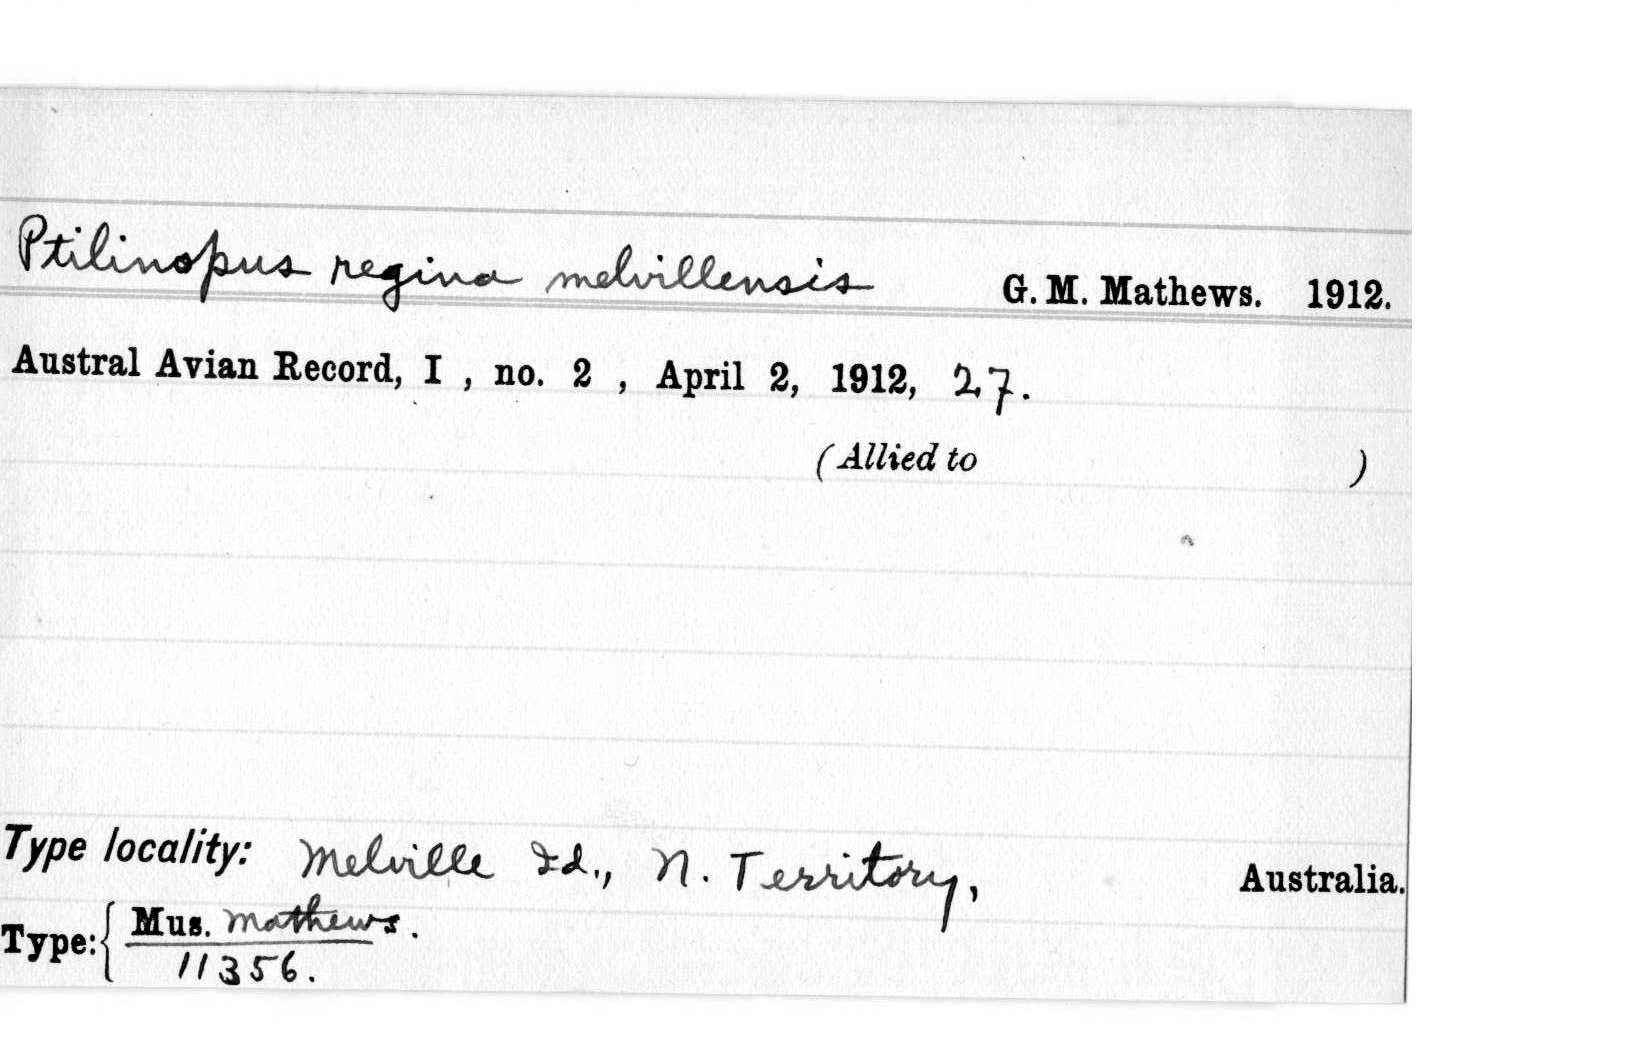 Ptilinopus regina melvillensis G. M. Mathews. 1912.
Austral Avian Record, I , no. 2 , April 2, 1912, 27.
(Allied to )
Type locality: Melville Id., N. Territory, Australia.
Type: { Mus. Mathews.
11356.